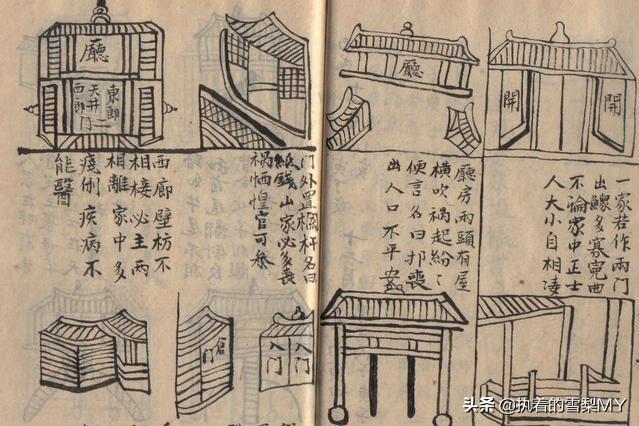 開
開
一家若作兩門
出鰥多寡冤曲
不論家中正士
人大小自相凌
廳
廳房兩頭有屋
橫吹禍起紛〻
便言名曰扛喪
出人口不平安
門外置欄杆名曰
紙錢山家必多喪
禍恓惶官可參
廳
東郎
天井
門
西郎
西廊壁枋不
相接必主兩
相離家中多
疾病不
能醫
入門
入門
倉門
头条 @执着的雪梨MY